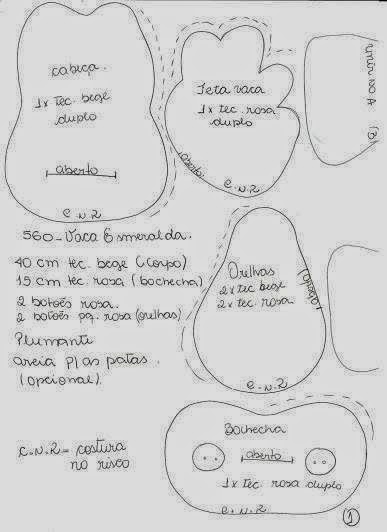 cabeça.
1x tec. bege
duplo
aberto
C.N.R
Teta vaca
1x tec. rosa
duplo
aberto
C.N.R
560-Vaca Esmeralda.
40 cm tec. bege (corpo)
15 cm tec. rosa (bochecha)
2 botões rosa.
2 botões pq. rosa (orelhas)
Plumante
areia p/ as patas.
(opcional).
Orelhas
2x tec bege
2x tec. rosa.
(aberto)
C.N.R
C.N.R = costura
no risco
Bochecha
aberto
1x tec. rosa duplo
C.N.R
1